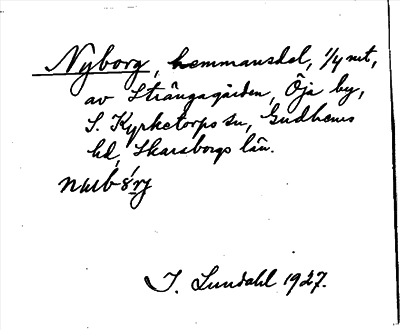 Nyborg, hemmansdel, 1/4 mt,
av Strångagården, Öja by,
S. Kyrketorps sn, Gudhems
hd, Skaraborgs län.
I. Lundahl 1927.